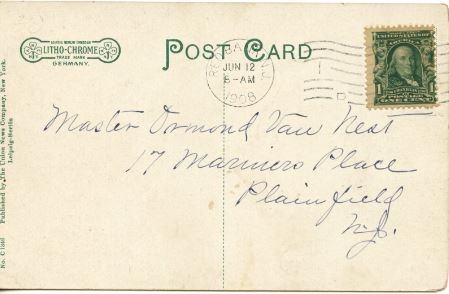 LITHO-CHROME
TRADE MARK
GERMANY.
POST CARD
JUN 12
8-AM
1908
UNITED STATES OF AMERICA
1 1
ONE CENT
Master Ormond Van Nest
17 Mariners Place
Plainfield
N.J.
Published by The Union News Company, New York.
Leipzig-Berlin